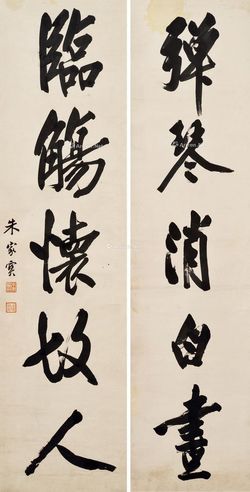 弹琴消白晝
臨觴懷故人
朱家寶